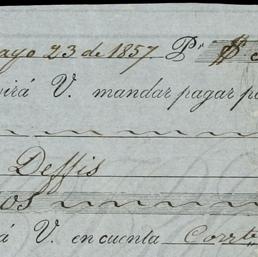 ayo 23 de 1857. Pr. $
irá V. mandar pagar p
Deffis
os
á V. en cuenta Corrte